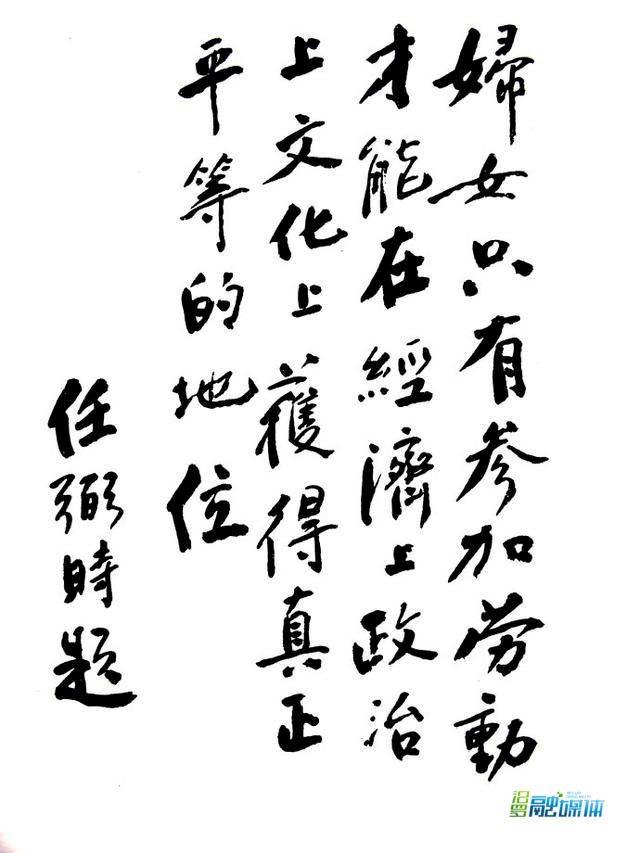 婦女只有参加劳動
才能在經濟上政治
上文化上獲得真正
平等的地位
任弼時題
汨罗融媒体